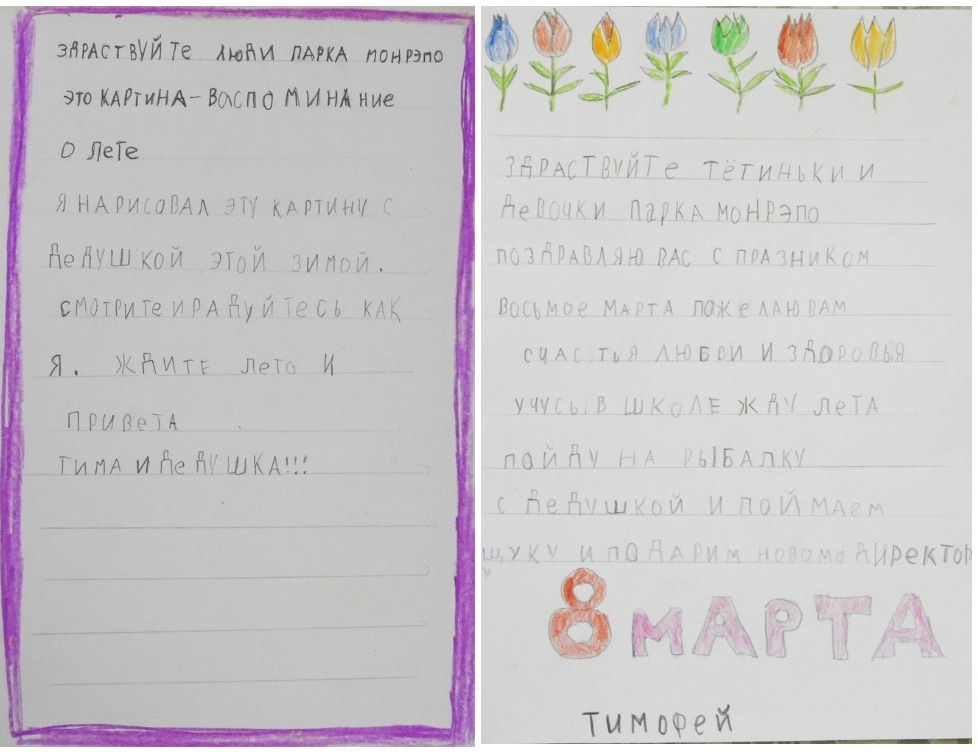 ЗДРАСТВУЙТЕ ЛЮДИ ПАРКА МОНРЭПО
ЭТО КАРТИНА - ВОСПОМИНАНИЕ
О ЛЕТЕ
Я НАРИСОВАЛ ЭТУ КАРТИНУ С
ДЕДУШКОЙ ЭТОЙ ЗИМОЙ.
СМОТРИТЕ И РАДУЙТЕСЬ КАК
Я. ЖДИТЕ ЛЕТО И
ПРИВЕТА
ТИМА И ДЕДУШКА!!!
ЗДРАСТВУЙТЕ ТЁТИНЬКИ И
ДЕВОЧКИ ПАРКА МОНРЭПО
ПОЗДРАВЛЯЮ ВАС С ПРАЗНИКОМ
ВОСЬМОЕ МАРТА ПОЖЕЛАЮ ВАМ
СЧАСТЬЯ ЛЮБВИ И ЗДОРОВЬЯ
УЧУСЬ В ШКОЛЕ ЖДУ ЛЕТА
ПОЙДУ НА РЫБАЛКУ
С ДЕДУШКОЙ И ПОЙМАЕМ
ЩУКУ И ПОДАРИМ НОВОМО ДИРЕКТОР
У
8 МАРТА
ТИМОФЕЙ